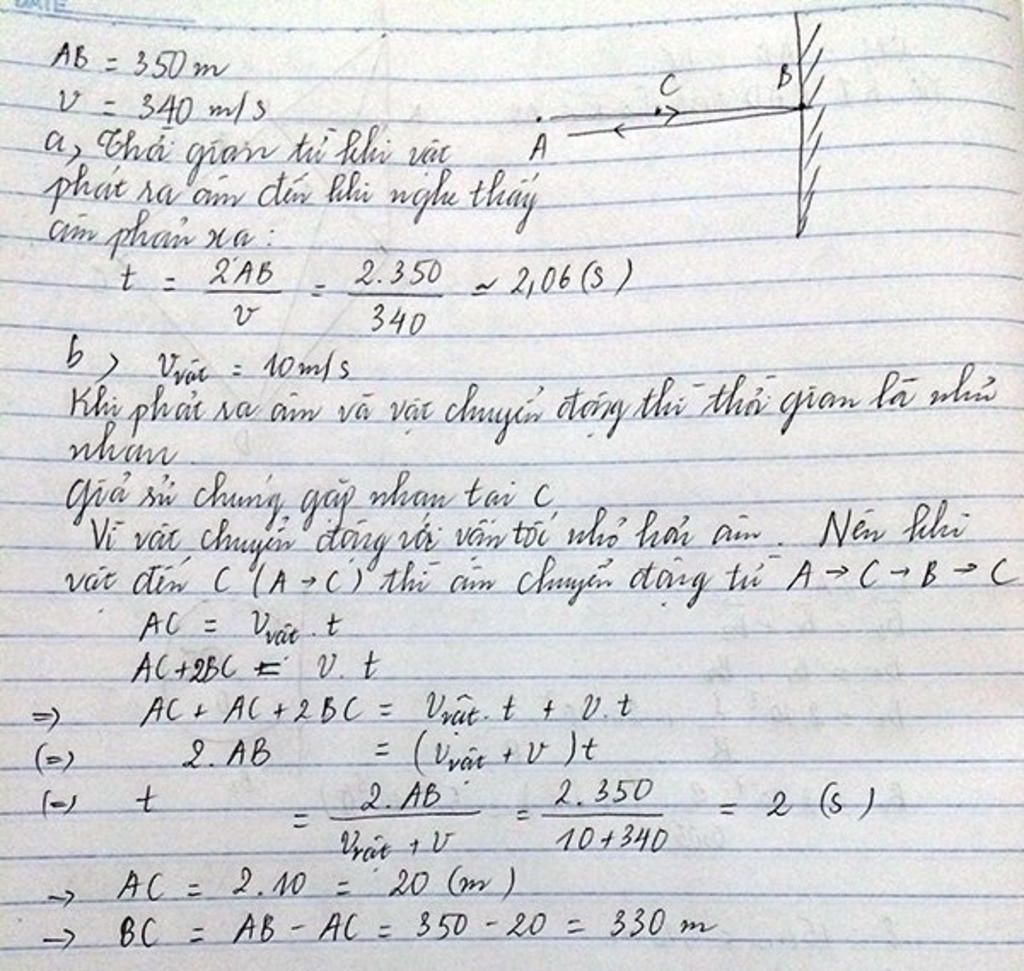 DATE
AB = 350 m
v = 340 m/s
a, Thời gian từ khi vật
phát ra âm đến khi nghe thấy
âm phản xạ :
t = 2AB / v = 2.350 / 340 ≈ 2,06 (s)
b, v vật = 10 m/s
Khi phát ra âm và vật chuyển động thì thời gian là như
nhau
Giả sử chúng gặp nhau tại C
Vì vật chuyển động với vận tốc nhỏ hơn âm. Nên khi
vật đến C (A → C) thì âm chuyển động từ A → C → B → C
AC = v vật . t
AC + 2BC = v. t
=> AC + AC + 2BC = v vật. t + v. t
(=) 2. AB = (v vật + v) t
(=) t = 2. AB / v vật + v = 2. 350 / 10 + 340 = 2 (s)
→ AC = 2. 10 = 20 (m)
→ BC = AB - AC = 350 - 20 = 330 m
A
C
B